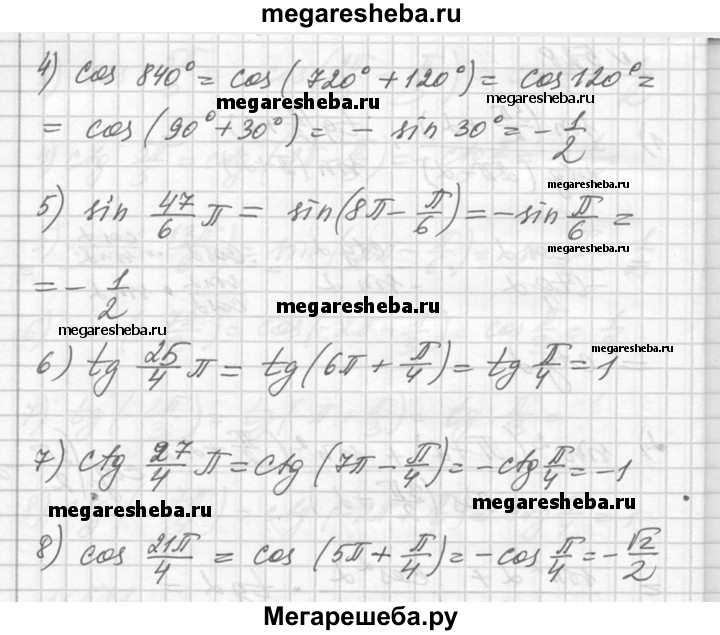 megaresheba.ru
4) cos 840° = cos(720° + 120°) = cos 120° =
megaresheba.ru megaresheba.ru
= cos(90° + 30°) = - sin 30° = - 1/2
megaresheba.ru
5) sin 47/6 π = sin(8π - π/6) = - sin π/6 =
megaresheba.ru
= - 1/2
megaresheba.ru
megaresheba.ru
6) tg 25/4 π = tg(6π + π/4) = tg π/4 = 1
megaresheba.ru
7) ctg 27/4 π = ctg(7π - π/4) = - ctg π/4 = -1
megaresheba.ru megaresheba.ru
8) cos 21π/4 = cos (5π + π/4) = - cos π/4 = - √2/2
Мегарешеба.ру